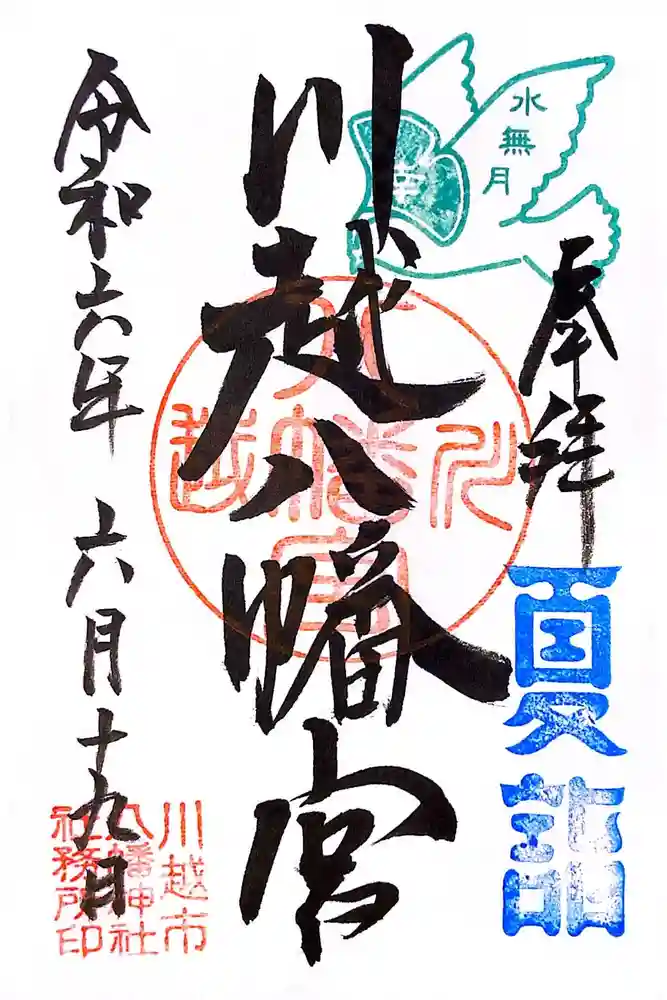 奉拝
夏詣
水無月
幸
川越八幡宮
川越
八幡宮
令和六年 六月十九日
川越市
八幡神社
社務所印